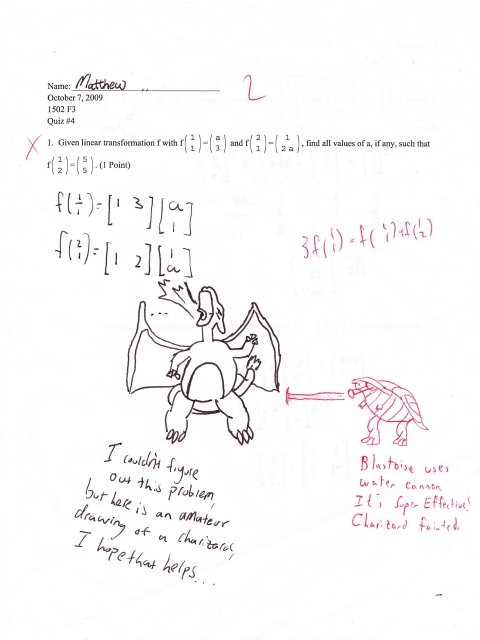 Name: Matthew
2
October 7, 2009
1502 F3
Quiz #4
X 1. Given linear transformation f with f(1 1)=(a 3) and f(2 1)=(1 2a), find all values of a, if any, such that
f(1 2)=(5 5). (1 Point)
f(1 1)=[1 3][a 1]
3f(1 1)=f(2 1)+f(1 2)
f(2 1)=[1 2][1 a]
...
I couldn't figure
out this problem,
but here is an amateur
drawing of a charizard,
I hope that helps...
Blastoise uses
water cannon
It's Super Effective!
Charizard fainted.